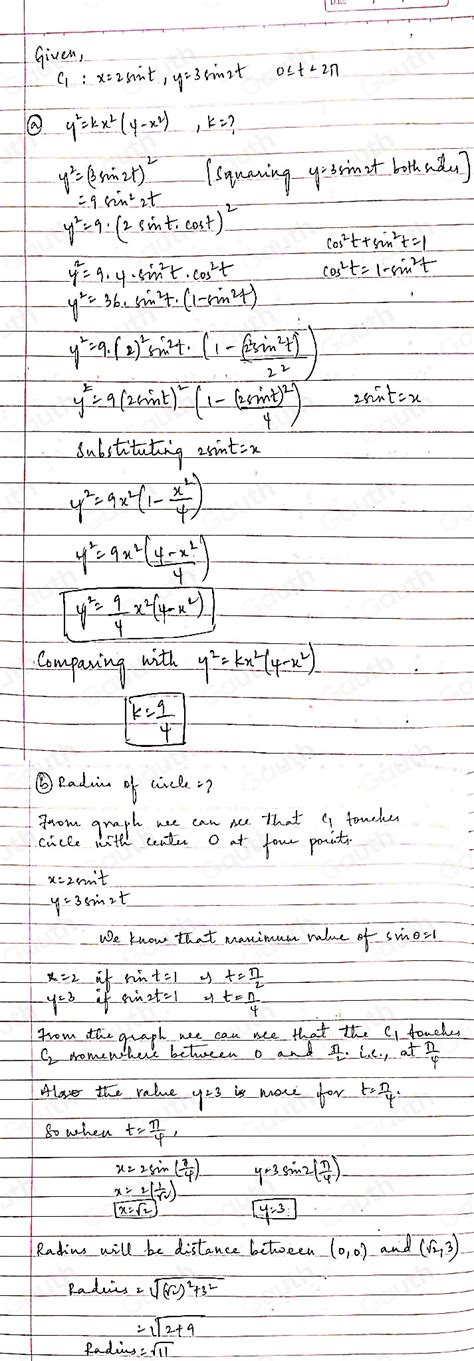 Given,
C₁ : x=2sint, y=3sin2t 0≤t<2π
(a) y²=kx²(4-x²) , k=?
y²=(3sin2t)² [Squaring y=3sin2t both sides]
=9sin²2t
y²=9·(2sint.cost)²
cos²t+sin²t=1
y²=9.4.sin²t.cos²t cos²t=1-sin²t
y²=36.sin²t.(1-sin²t)
y²=9.(2)²sin²t.(1-(2²sin²t)/2²)
y²=9(2sint)²(1-(2sint)²/4) 2sint=x
Substituting 2sint=x
y²=9x²(1-x²/4)
y²=9x²((4-x²)/4)
y²=9/4 x²(4-x²)
Comparing with y²=kx²(4-x²)
k=9/4
(b) Radius of circle=?
From graph we can see that C₁ touches
circle with center O at four points.
x=2sint
y=3sin2t
We know that maximum value of sinθ=1
x=2 if sint=1 ⇒ t=π/2
y=3 if sin2t=1 ⇒ t=π/4
From the graph we can see that the C₁ touches
C₂ somewhere between 0 and π/2. i.e., at π/4
Also the value y=3 is more for t=π/4.
So when t=π/4,
x=2sin(π/4) y=3sin2(π/4)
x=2(1/√2)
x=√2 y=3
Radius will be distance between (0,0) and (√2,3)
Radius=√(√2)²+3²
=√2+9
Radius=√11